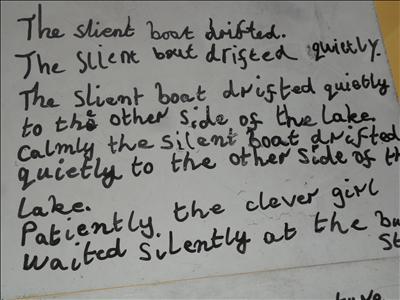 The slient boat drifted.
The slient bout drifted quietly.
The slient boat drifted quietly
to the other side of the lake.
Calmly the silent boat drifted
quietly to the other side of
lake.
Patiently. the clever girl
waited silently at the